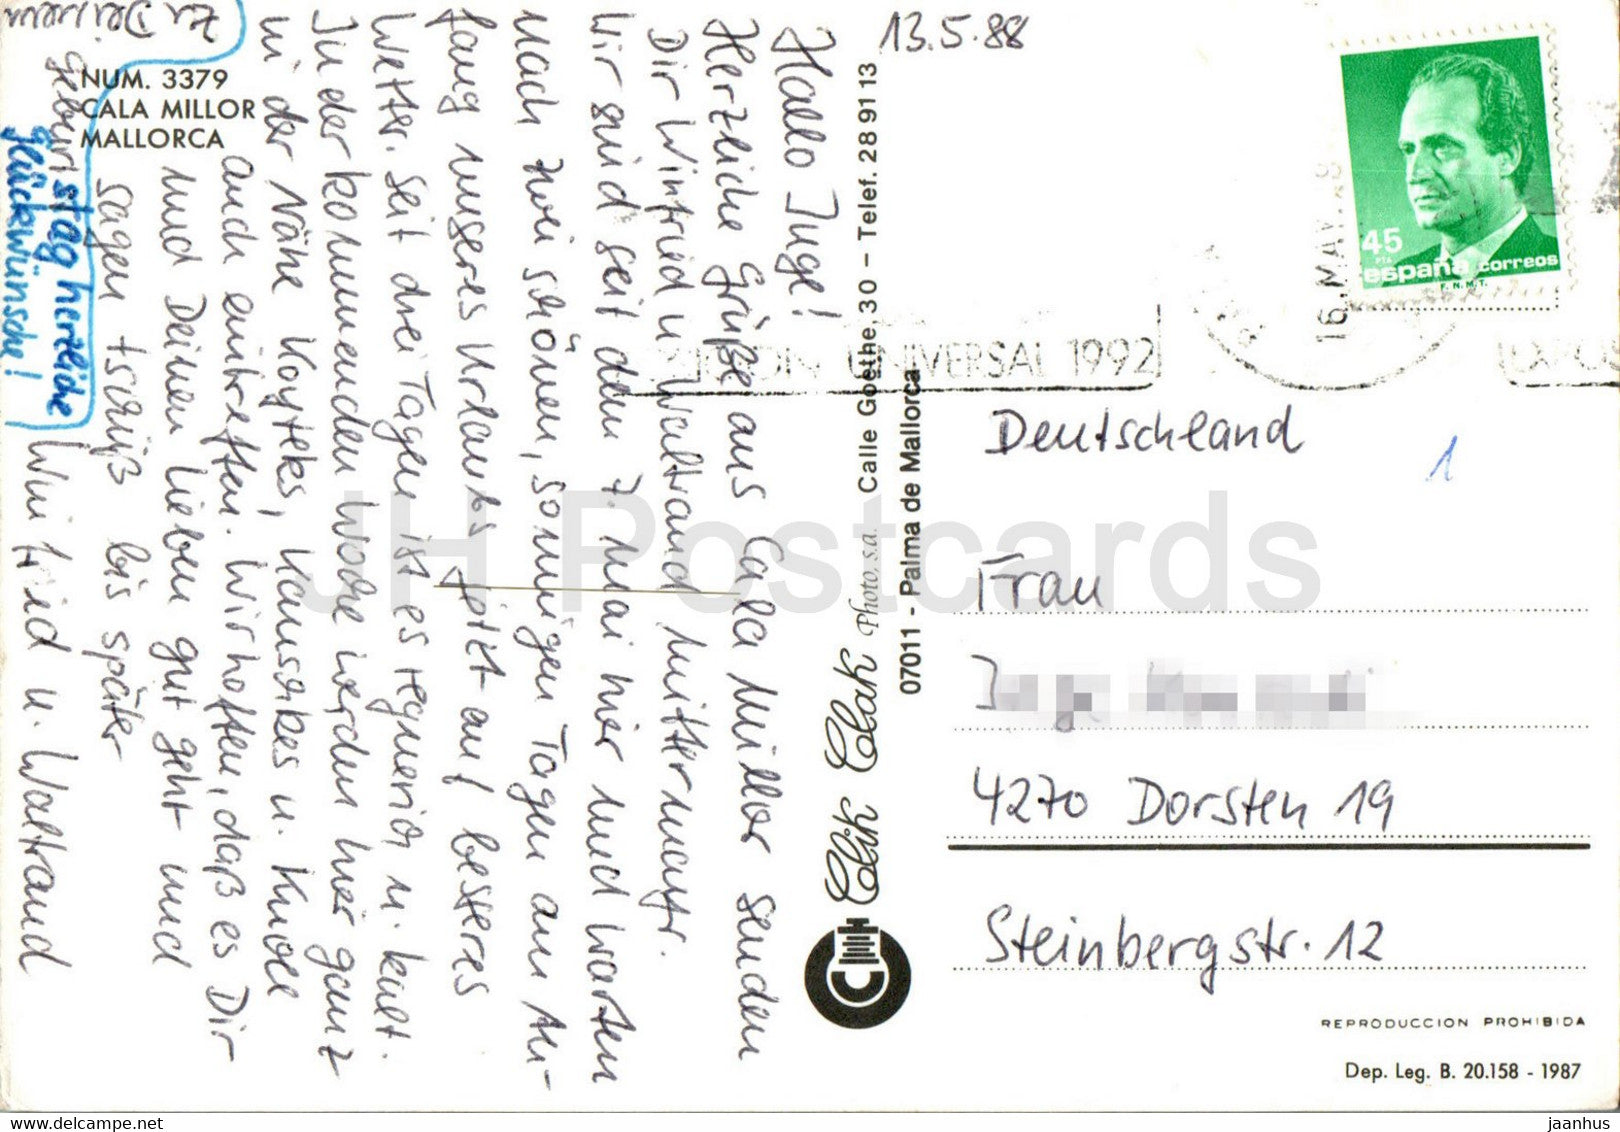 13.5.88
Hallo Inge!
Herzliche Grüße aus Cala Millor senden
Dir Winfried u. Waltraud Mittermayr.
Wir sind seit dem 7. Mai hier und warten
nach zwei schönen, sonnigen Tagen am An-
fang unseres Urlaubs jetzt auf besseres
Wetter. Seit drei Tagen ist es regnerisch u. kalt.
In der kommenden Woche werden hier ganz
in der Nähe u. Knoll
auch eintreffen. Wir hoffen, daß es Dir
und Deinen Lieben gut geht und
sagen tschüß bis später
Winfried u. Waltraud
Zu Deinem
geburtstag herzliche
Glückwünsche!
NUM. 3379
CALA MILLOR
MALLORCA
Clik Clak Photo, s.a. Calle Goethe, 30 – Telef. 28 91 13
07011 - Palma de Mallorca
45
PTA
españa correos
F.N.M.T.
16.MAY.88
UNIVERSAL 1992
EXPOS
Deutschland
1
Frau
4270 Dorsten 19
Steinbergstr. 12
REPRODUCCION PROHIBIDA
Dep. Leg. B. 20.158 - 1987
JH Postcards
jaanhus